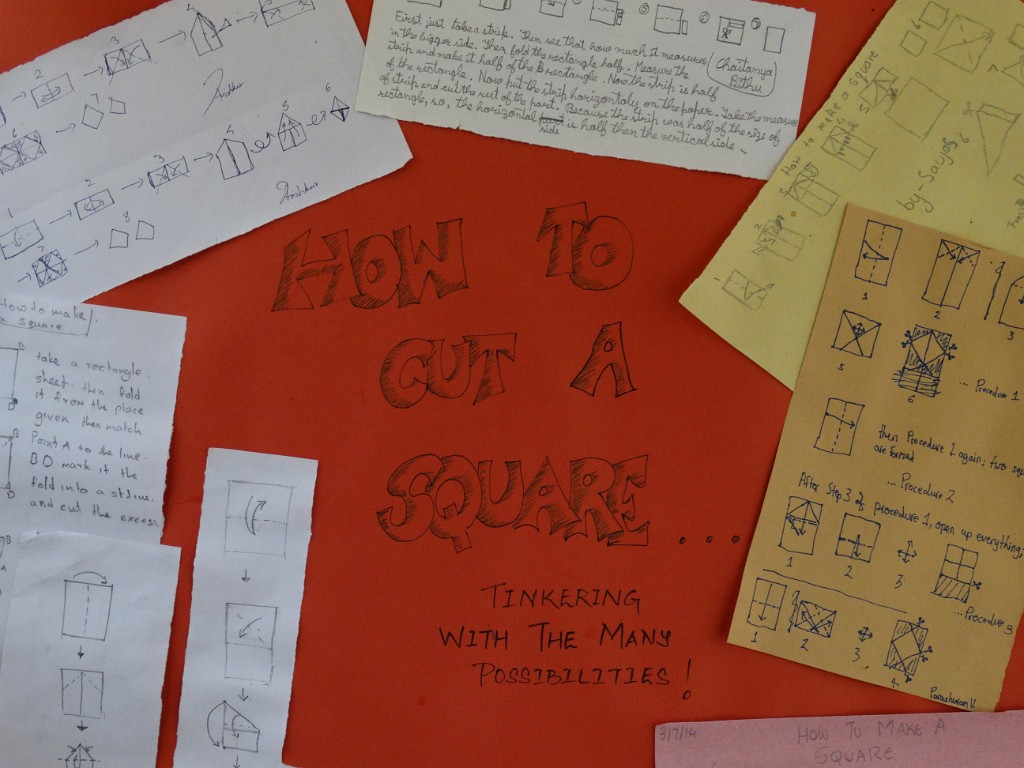 First just take a strip. Then see that how much it measures
in the bigger side. Then fold the rectangle half. Measure the
strip and make it half of the B rectangle. Now the strip is half
of the rectangle. Now put the strip horizontaly on the paper. Take the measure
of strip and cut the rest of the part. Because the strip was half of the size of
rectangle, so, the horizontal side is half then the vertical side.
Chaitanya
2
3
4
2
3
4
5
6
1
8
How to make a square
by- Soujos
HOW TO
CUT A
SQUARE ...
TINKERING
WITH THE MANY
POSSIBILITIES!
How to make
a square
take a rectangle
sheet then fold
it from the place
given then match
Point A to the line
BD mark it the
fold into a st line
and cut the excess
1
2
3
5
6
... Procedure 1
then Procedure 1 again; two
are formed
... Procedure 2
After Step 3 of procedure 1, open up everything;
1
2
3
... Procedure 3
1
2
3
4
3/7/14
HOW TO MAKE A
SQUARE